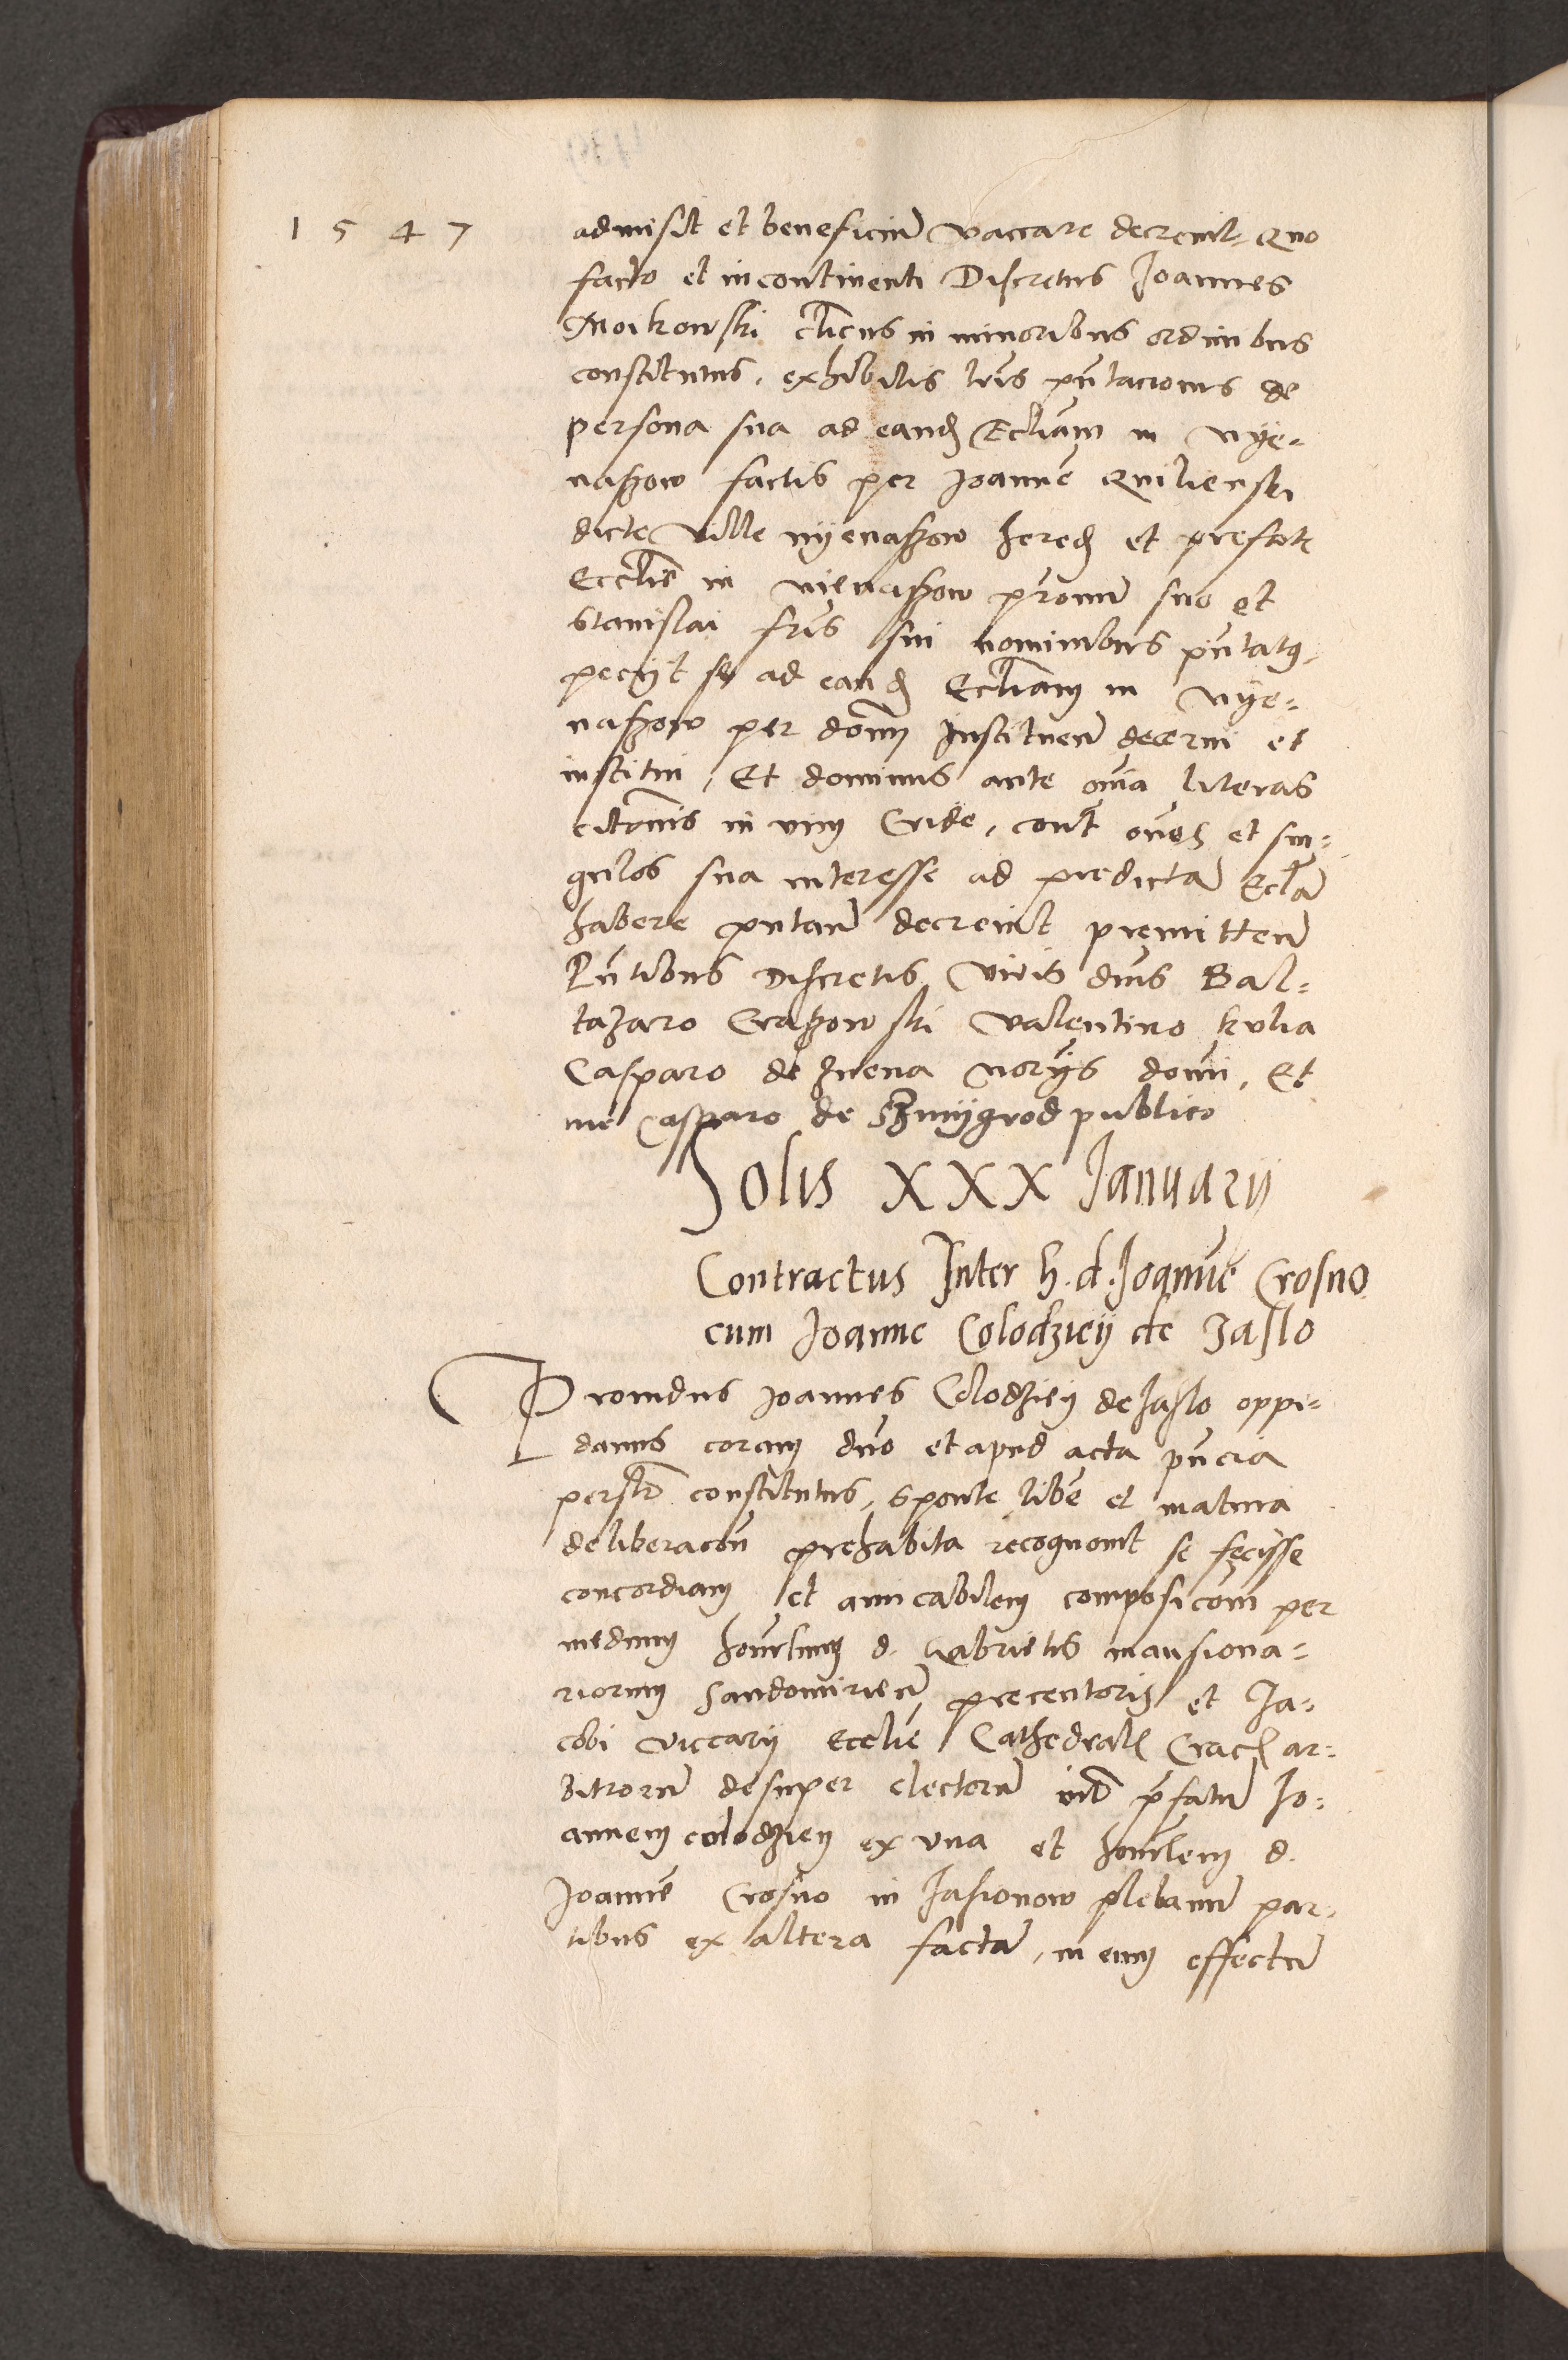 1547
admisit et beneficiũ vaccare decrevit. Quo
facto et incontinenti Discretus Joannes
Moikowski clicus in minoribus ordinibus
constitutus, exhibitis lris pñtacionis de
persona sua ad eand Eccliam in Nye-
naszow factis per Joannẽ Quilienski
dicte ville Nyenaszow hered et prefate
Ecclie in Nienaszow pronum suo et
Stanislai fris sui nominibus pñtatq
pecyt se ad eand Eccliam in Nye-
naszow per dom Instituen decerni et
institui, Et dominus ante oia literas
citaonis in vim Cride, cont oẽs et sin-
gulos sua interesse ad predictã Eccliã
habere putan decrevit premitten
Pñtibus discretis viris dnis Bal-
tazaro Craszowski Valentino kulia
Casparo de Znena norijs domi, Et
me Casparo de Szmijgrod publico
Solis XXX Januarii
Contractus Inter h. d. Joannẽ Crosno
cum Joanne Colodzieij de Jaslo
Providus Joannes Colodzieij de Jaslo oppi-
danus coram dño et apud acta pñcia
persolr constitutus, sponte libe et matura
deliberacõn prehabita recognovit se fecisse
concordiam et amicabilem composicõm per
medium honrlium d. Gabrielis mansiona-
riorum Sandomirien precentoris et Ja-
cobi viccarij Ecclie Cathedral Crac ar-
bitrorũ desuper electorũ int prefatũ Jo-
annem colodzien ex una et honrlem d.
Joannẽ Crosno in Jasionow plebanũ par-
tibus ex altera factã, in eum effectũ